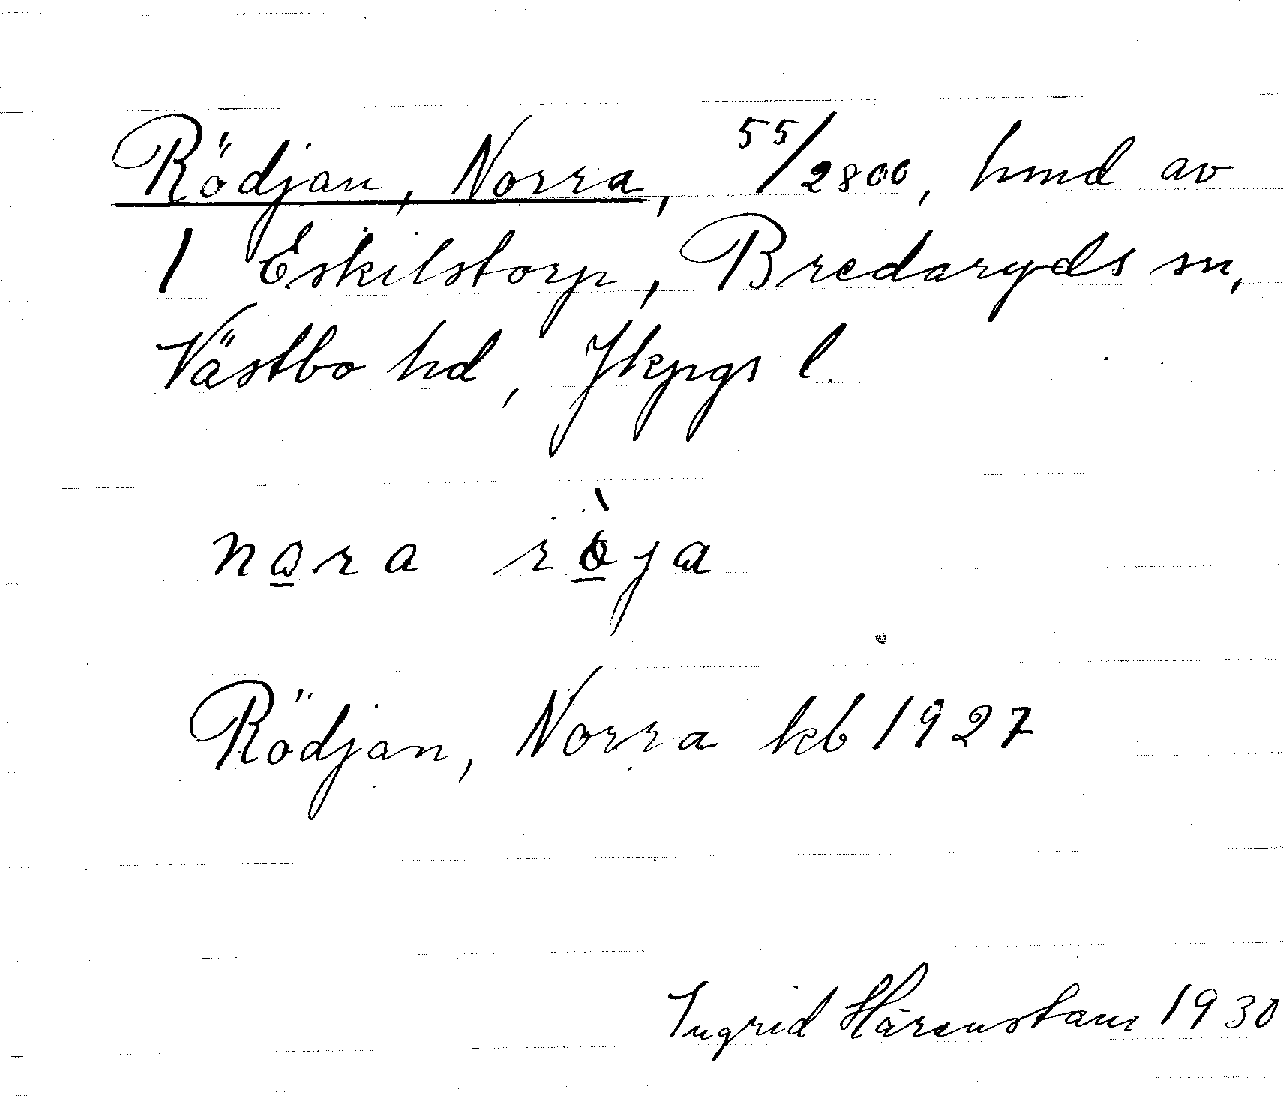 Rödjan, Norra, 55/2800, hmd av
1 Eskilstorp, Bredaryds sn,
Västbo hd, Jkpgs l.
no̲ra rò̲ja
Rödjan, Norra kb 1927
Ingrid Härenstam 1930